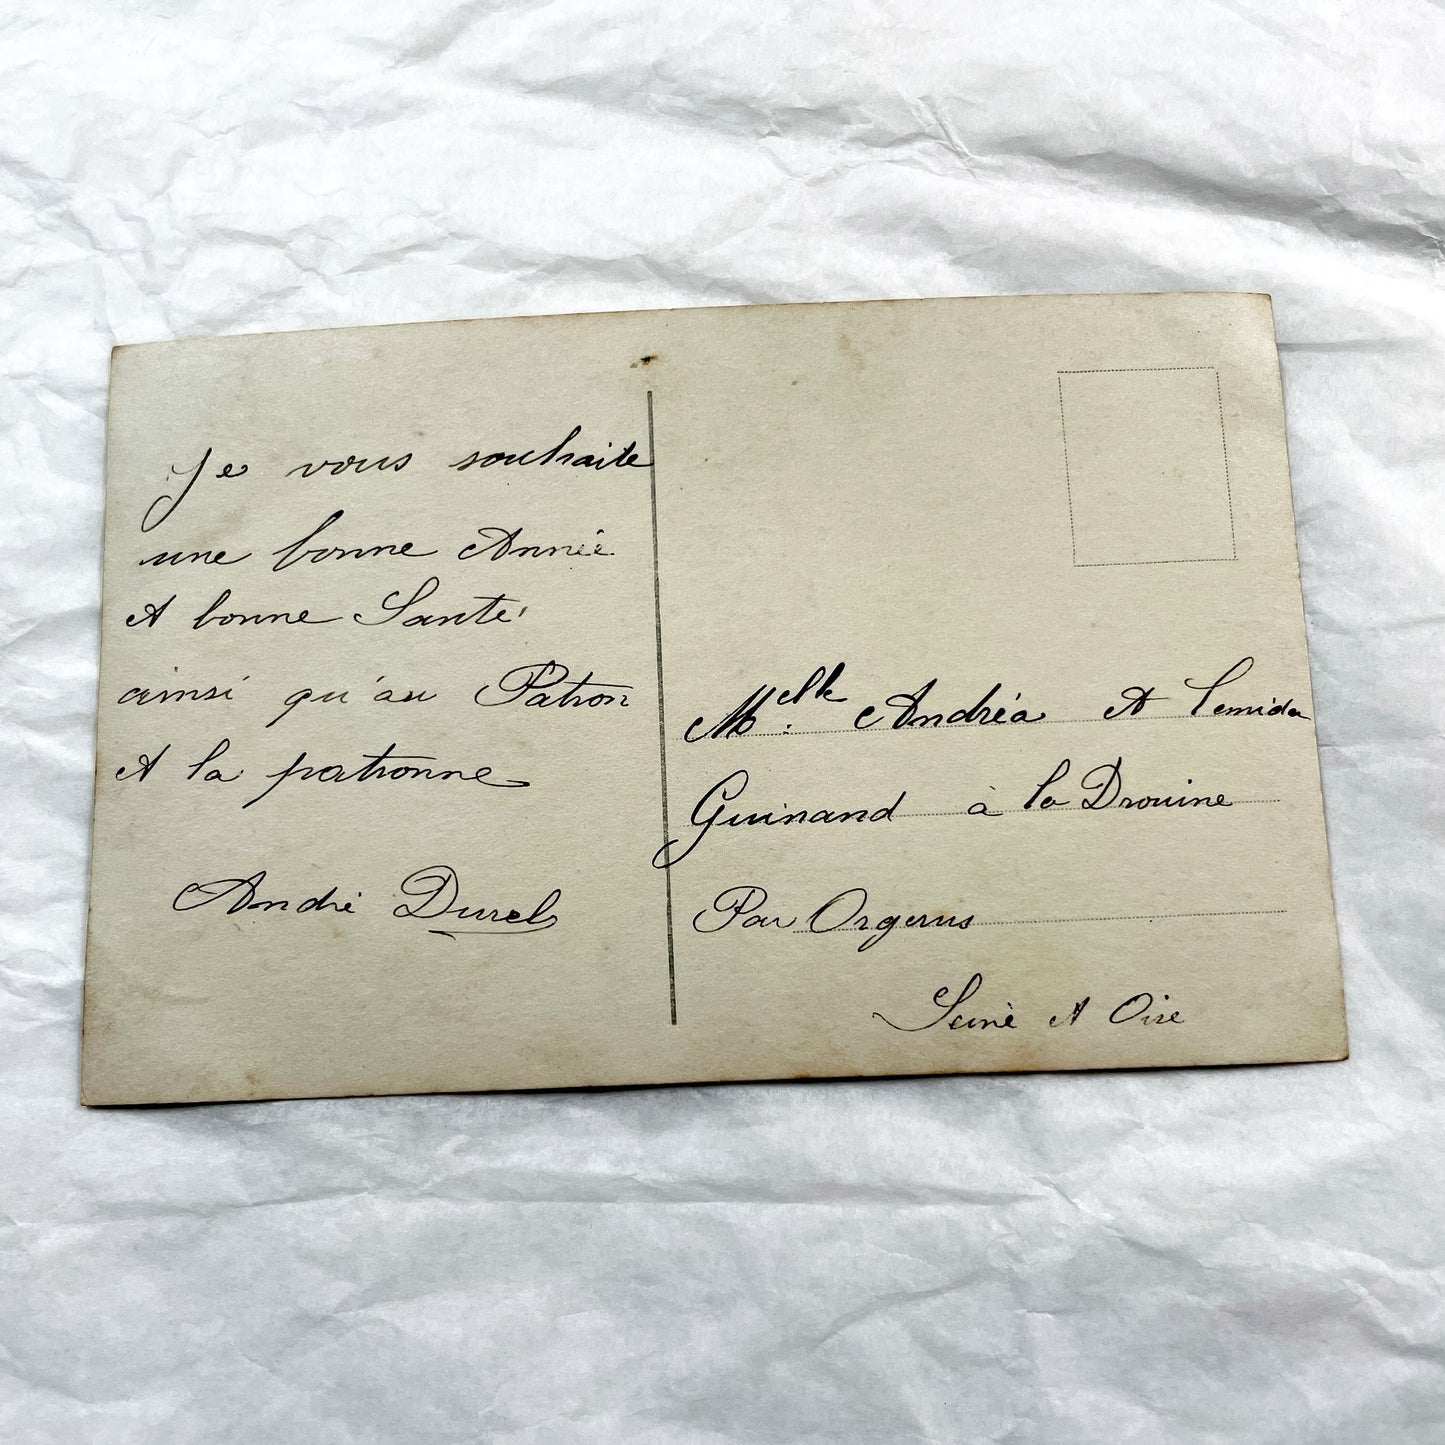 Je vous souhaite
une bonne Année
et bonne Santé
ainsi qu'au Patron
et la patronne
André Durel
Melle Andréa et
Guinand à la Drouine
Par Orgerus
Seine et Oise